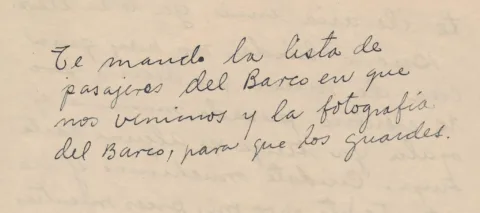 Te mando la lista de
pasajeros del Barco en que
nos vinimos y la fotografía
del Barco, para que los guardes.